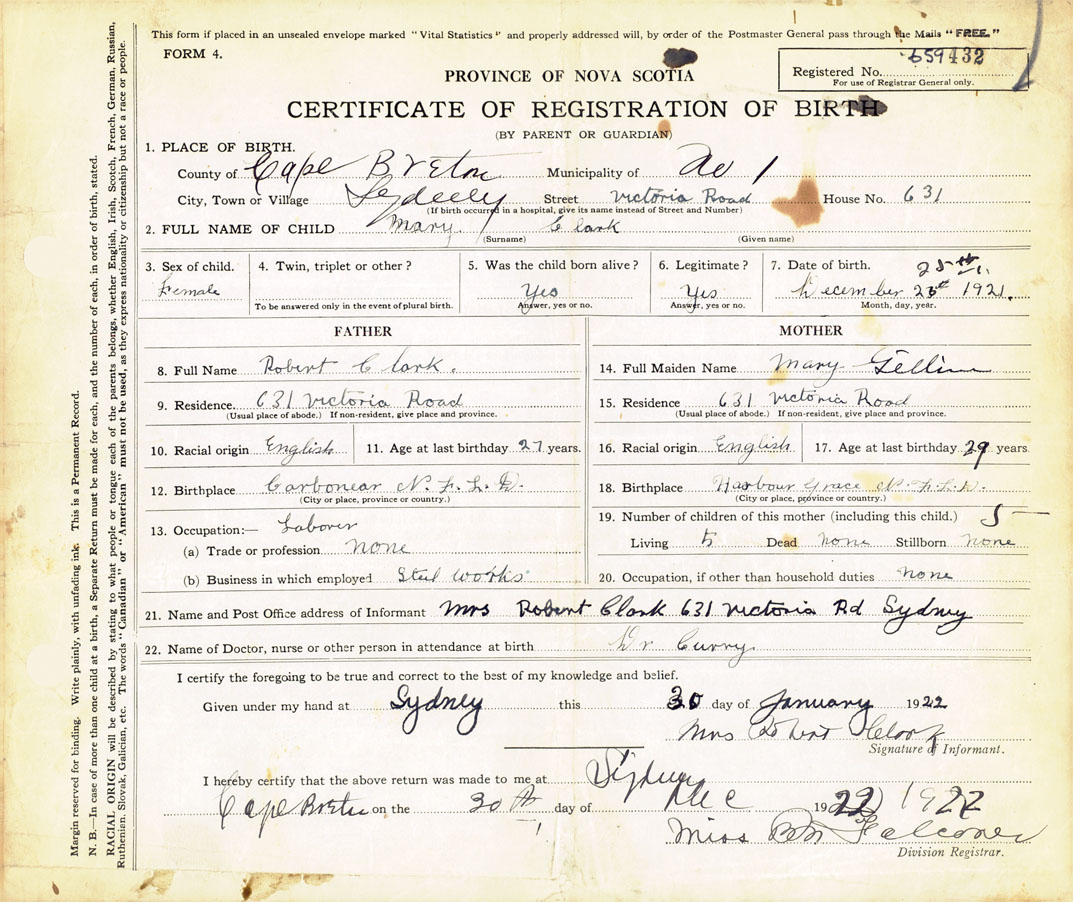 This form if placed in an unsealed envelope marked "Vital Statistics" and properly addressed will, by order of the Postmaster General pass through the Mails "FREE."
FORM 4.
659432
Registered No.
For use of Registrar General only.
PROVINCE OF NOVA SCOTIA
CERTIFICATE OF REGISTRATION OF BIRTH
(BY PARENT OR GUARDIAN)
1. PLACE OF BIRTH.
County of Cape Breton Municipality of No 1
City, Town or Village Sydney Street Victoria Road House No. 631
(If birth occurred in a hospital, give its name instead of Street and Number)
2. FULL NAME OF CHILD Mary Clark
(Surname) (Given name)
3. Sex of child. 4. Twin, triplet or other? 5. Was the child born alive? 6. Legitimate? 7. Date of birth. 25th
Female Yes Yes December 1921.
To be answered only in the event of plural birth. Answer, yes or no. Answer, yes or no. Month, day, year.
FATHER MOTHER
8. Full Name Robert Clark. 14. Full Maiden Name Mary
9. Residence. 631 Victoria Road 15. Residence 631 Victoria Road
(Usual place of abode.) If non-resident, give place and province. (Usual place of abode.) If non-resident, give place and province.
10. Racial origin English 11. Age at last birthday 27 years. 16. Racial origin English 17. Age at last birthday 29 years
12. Birthplace Carbonear N.F.L.D. 18. Birthplace Harbour Grace N.F.L.D.
(City or place, province or country.) (City or place, province or country.)
13. Occupation:— Laborer 19. Number of children of this mother (including this child.) 5
(a) Trade or profession none Living 5 Dead none Stillborn none
(b) Business in which employed Steel Works 20. Occupation, if other than household duties none
21. Name and Post Office address of Informant Mrs Robert Clark 631 Victoria Rd Sydney
22. Name of Doctor, nurse or other person in attendance at birth Dr Curry
I certify the foregoing to be true and correct to the best of my knowledge and belief.
Given under my hand at Sydney this 30 day of January 1922
Mrs Robert Clark
Signature of Informant.
I hereby certify that the above return was made to me at Sydney
Cape Breton on the 30th day of Dec 1922 1922
Miss Falconer
Division Registrar.
Margin reserved for binding. Write plainly, with unfading ink. This is a Permanent Record.
N. B.—In case of more than one child at a birth, a Separate Return must be made for each, and the number of each, in order of birth, stated.
RACIAL ORIGIN will be described by stating to what people or tongue each of the parents belongs, whether English, Irish, Scotch, French, German, Russian,
Ruthenian, Slovak, Galician, etc. The words "Canadian" or "American" must not be used, as they express nationality or citizenship but not a race or people.